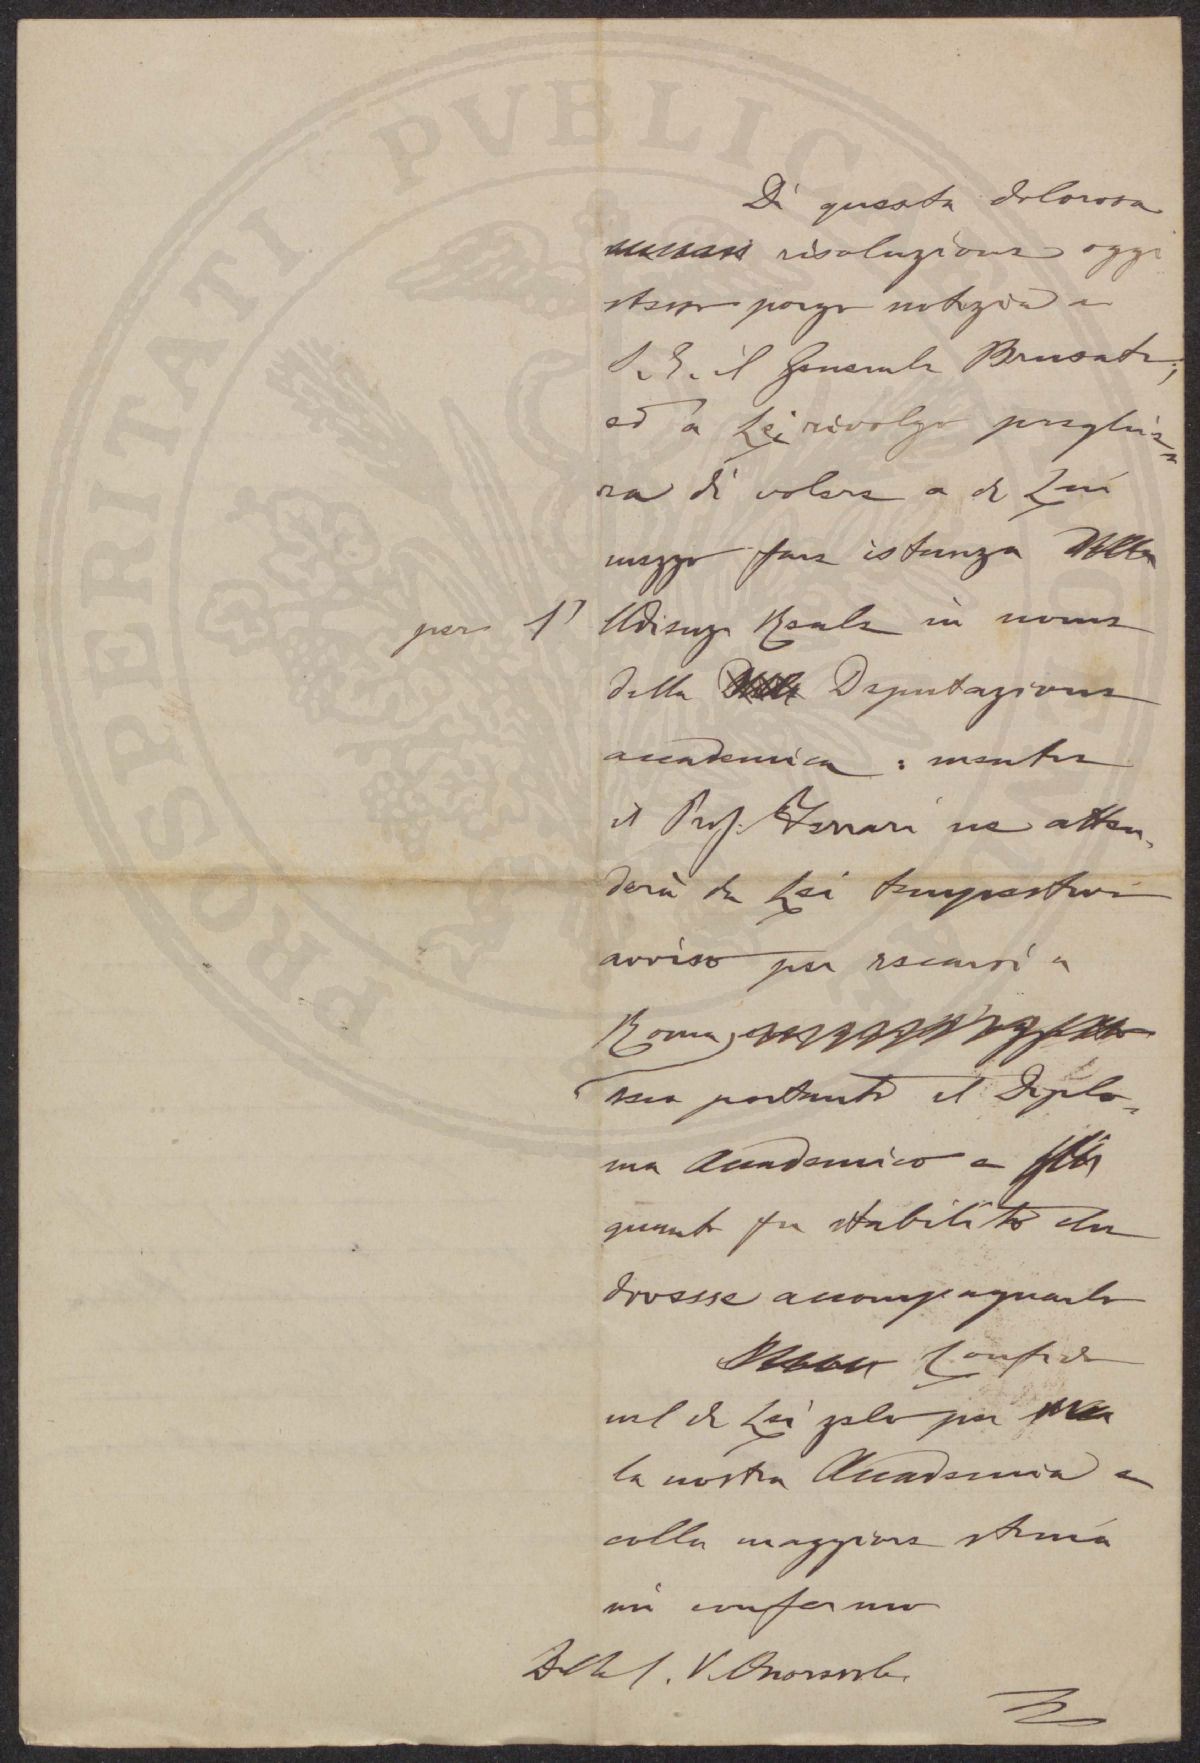 Di questa dolorosa
risoluzione oggi
stesso porgo notizia a
S. E. il Generale Brusati;
ed a Lei rivolgo preghie=
ra di volere a di Lei
mezzo fare istanza
per l' Udienza Reale in nome
della Deputazione
accademica: mentre
il Prof. Ferrari ne atten-
derà da Lei tempestivo
avviso per recarsi a
Roma,
seco portando il Diplo=
ma Accademico e
quanto fu stabilito che
dovesse accompagnarlo
Confido
nel di Lei zelo per
la nostra Accademia e
colla maggiore stima
mi confermo
Della S. V. Onorevole.
PROSPERITATI PVBLICAE AVGENDAE